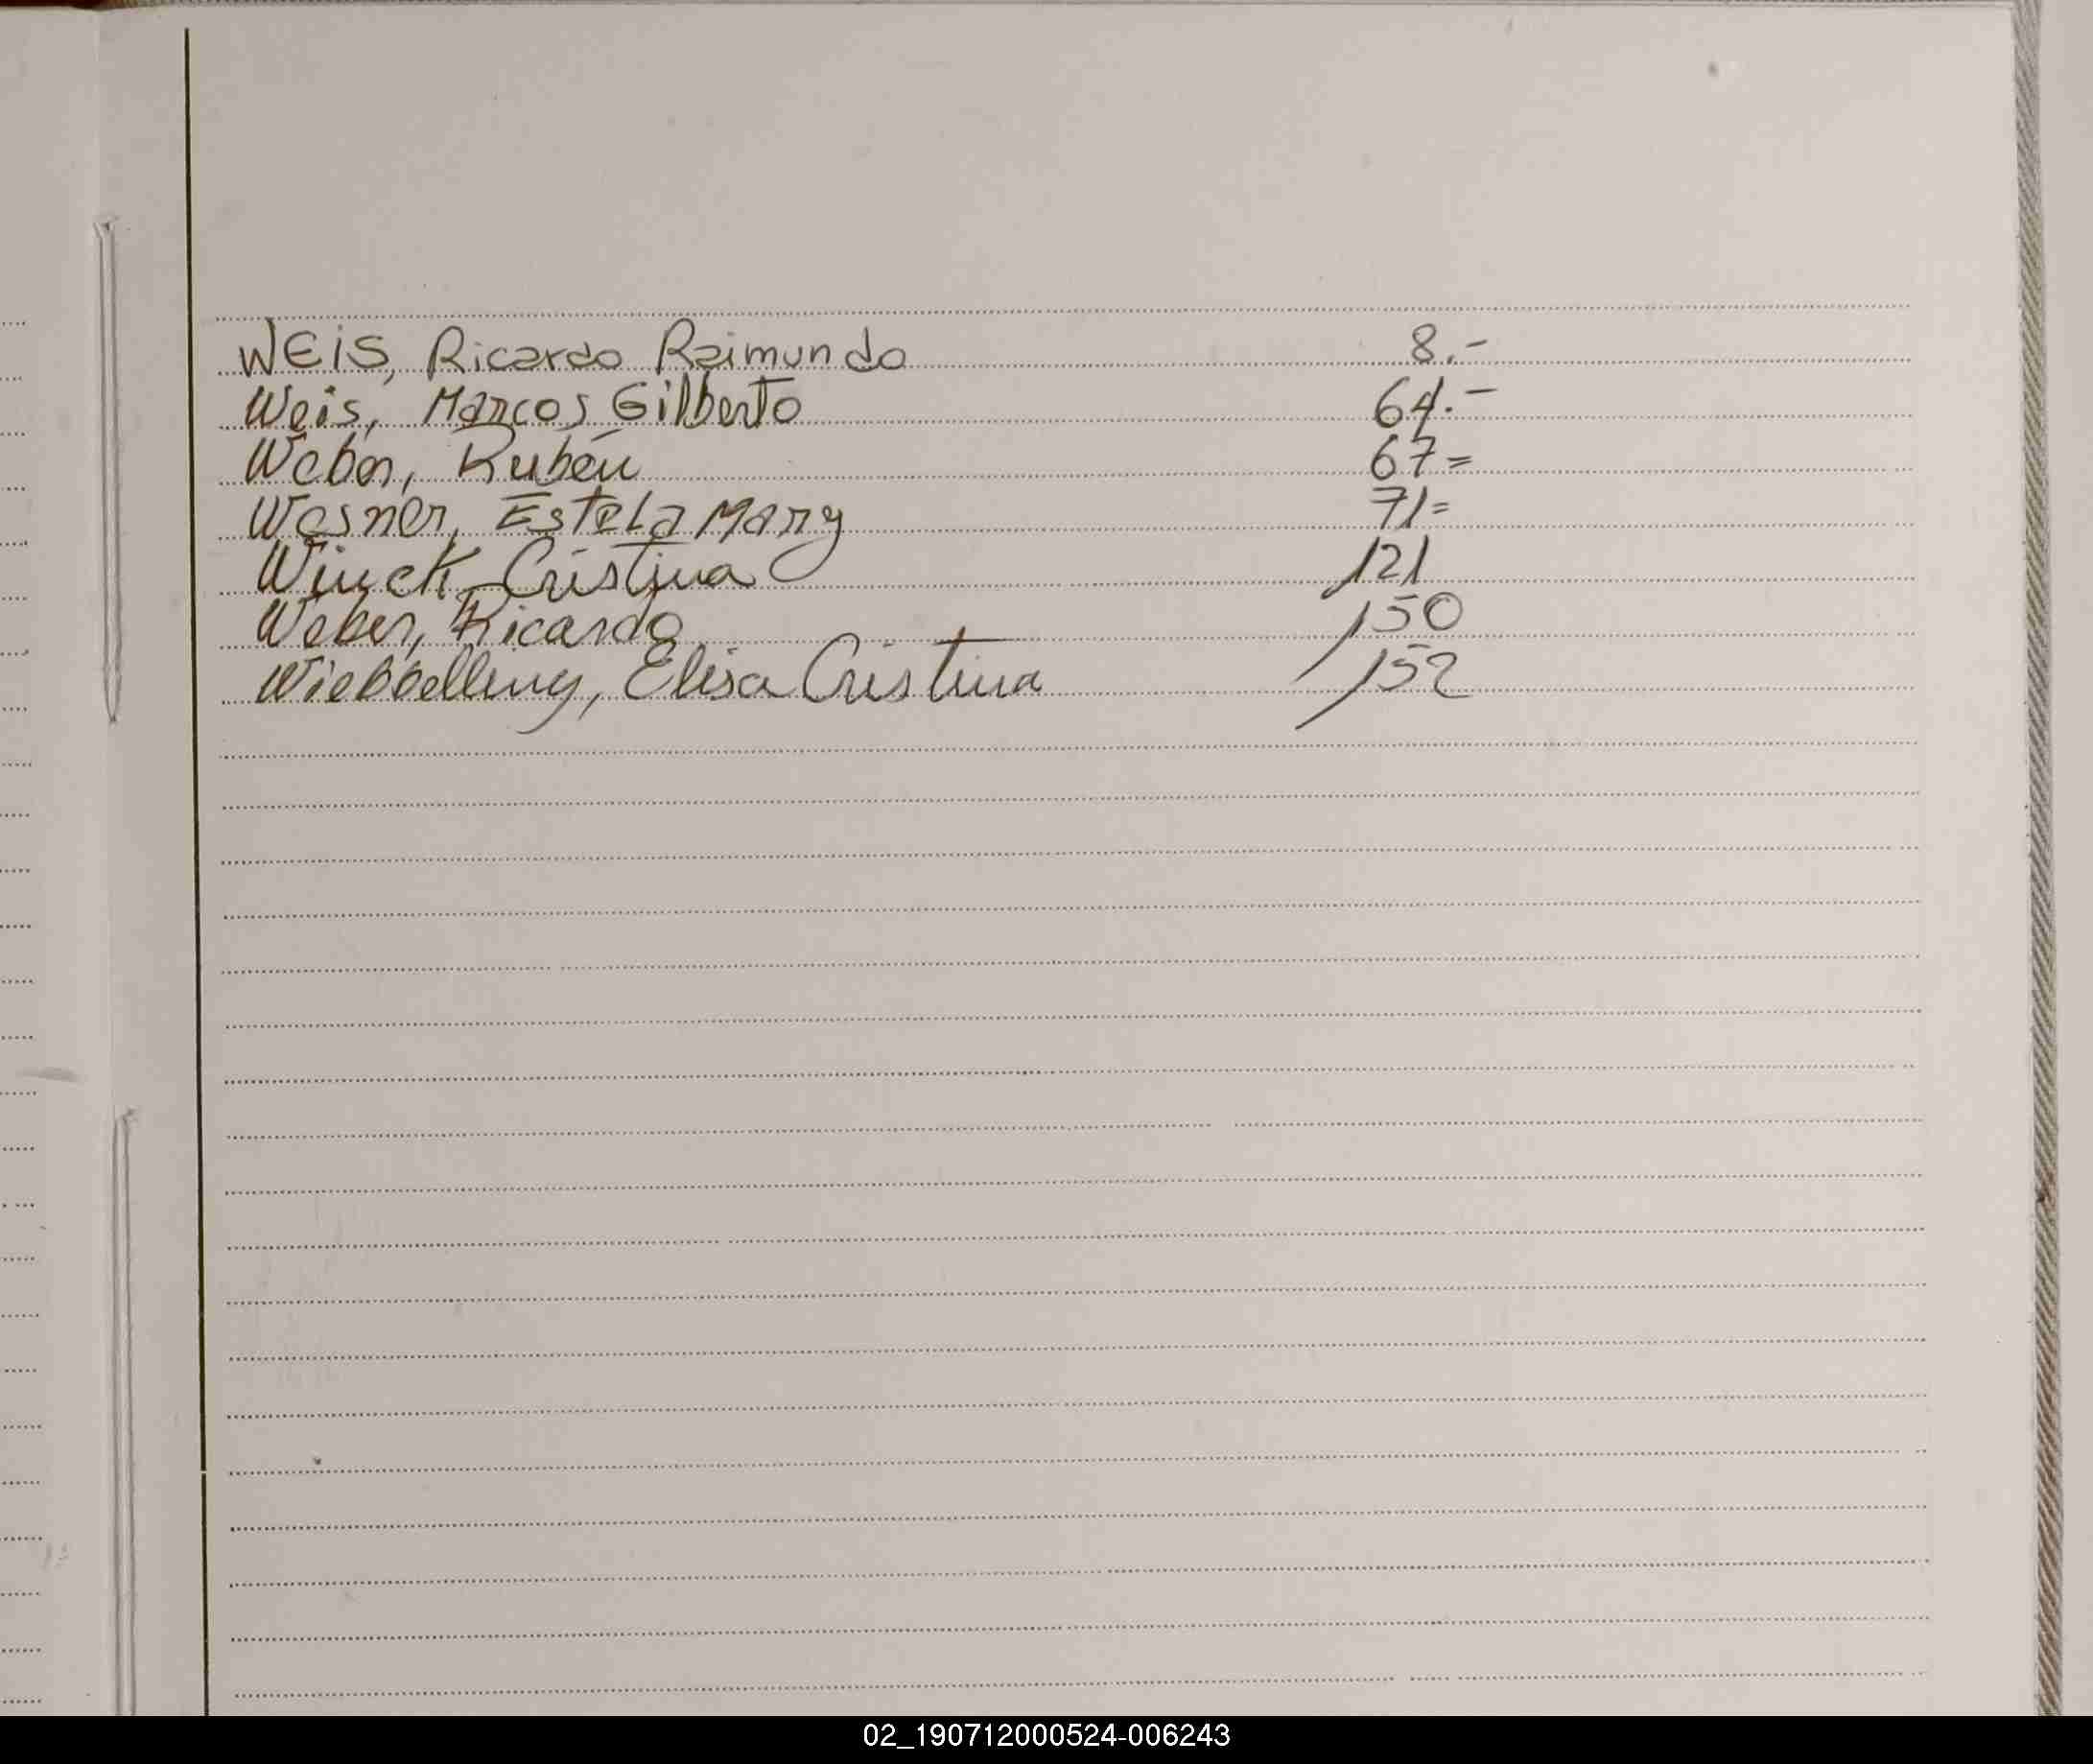 WEIS, Ricardo Raimundo 8.-
Weis, Marcos Gilberto 64.-
Weber, Rubén 67=
Wesner, Estela Mary 71=
Winck, Cristina 121
Weber, Ricardo 150
Wiebbelling, Elisa Cristina 152
02_190712000524-006243